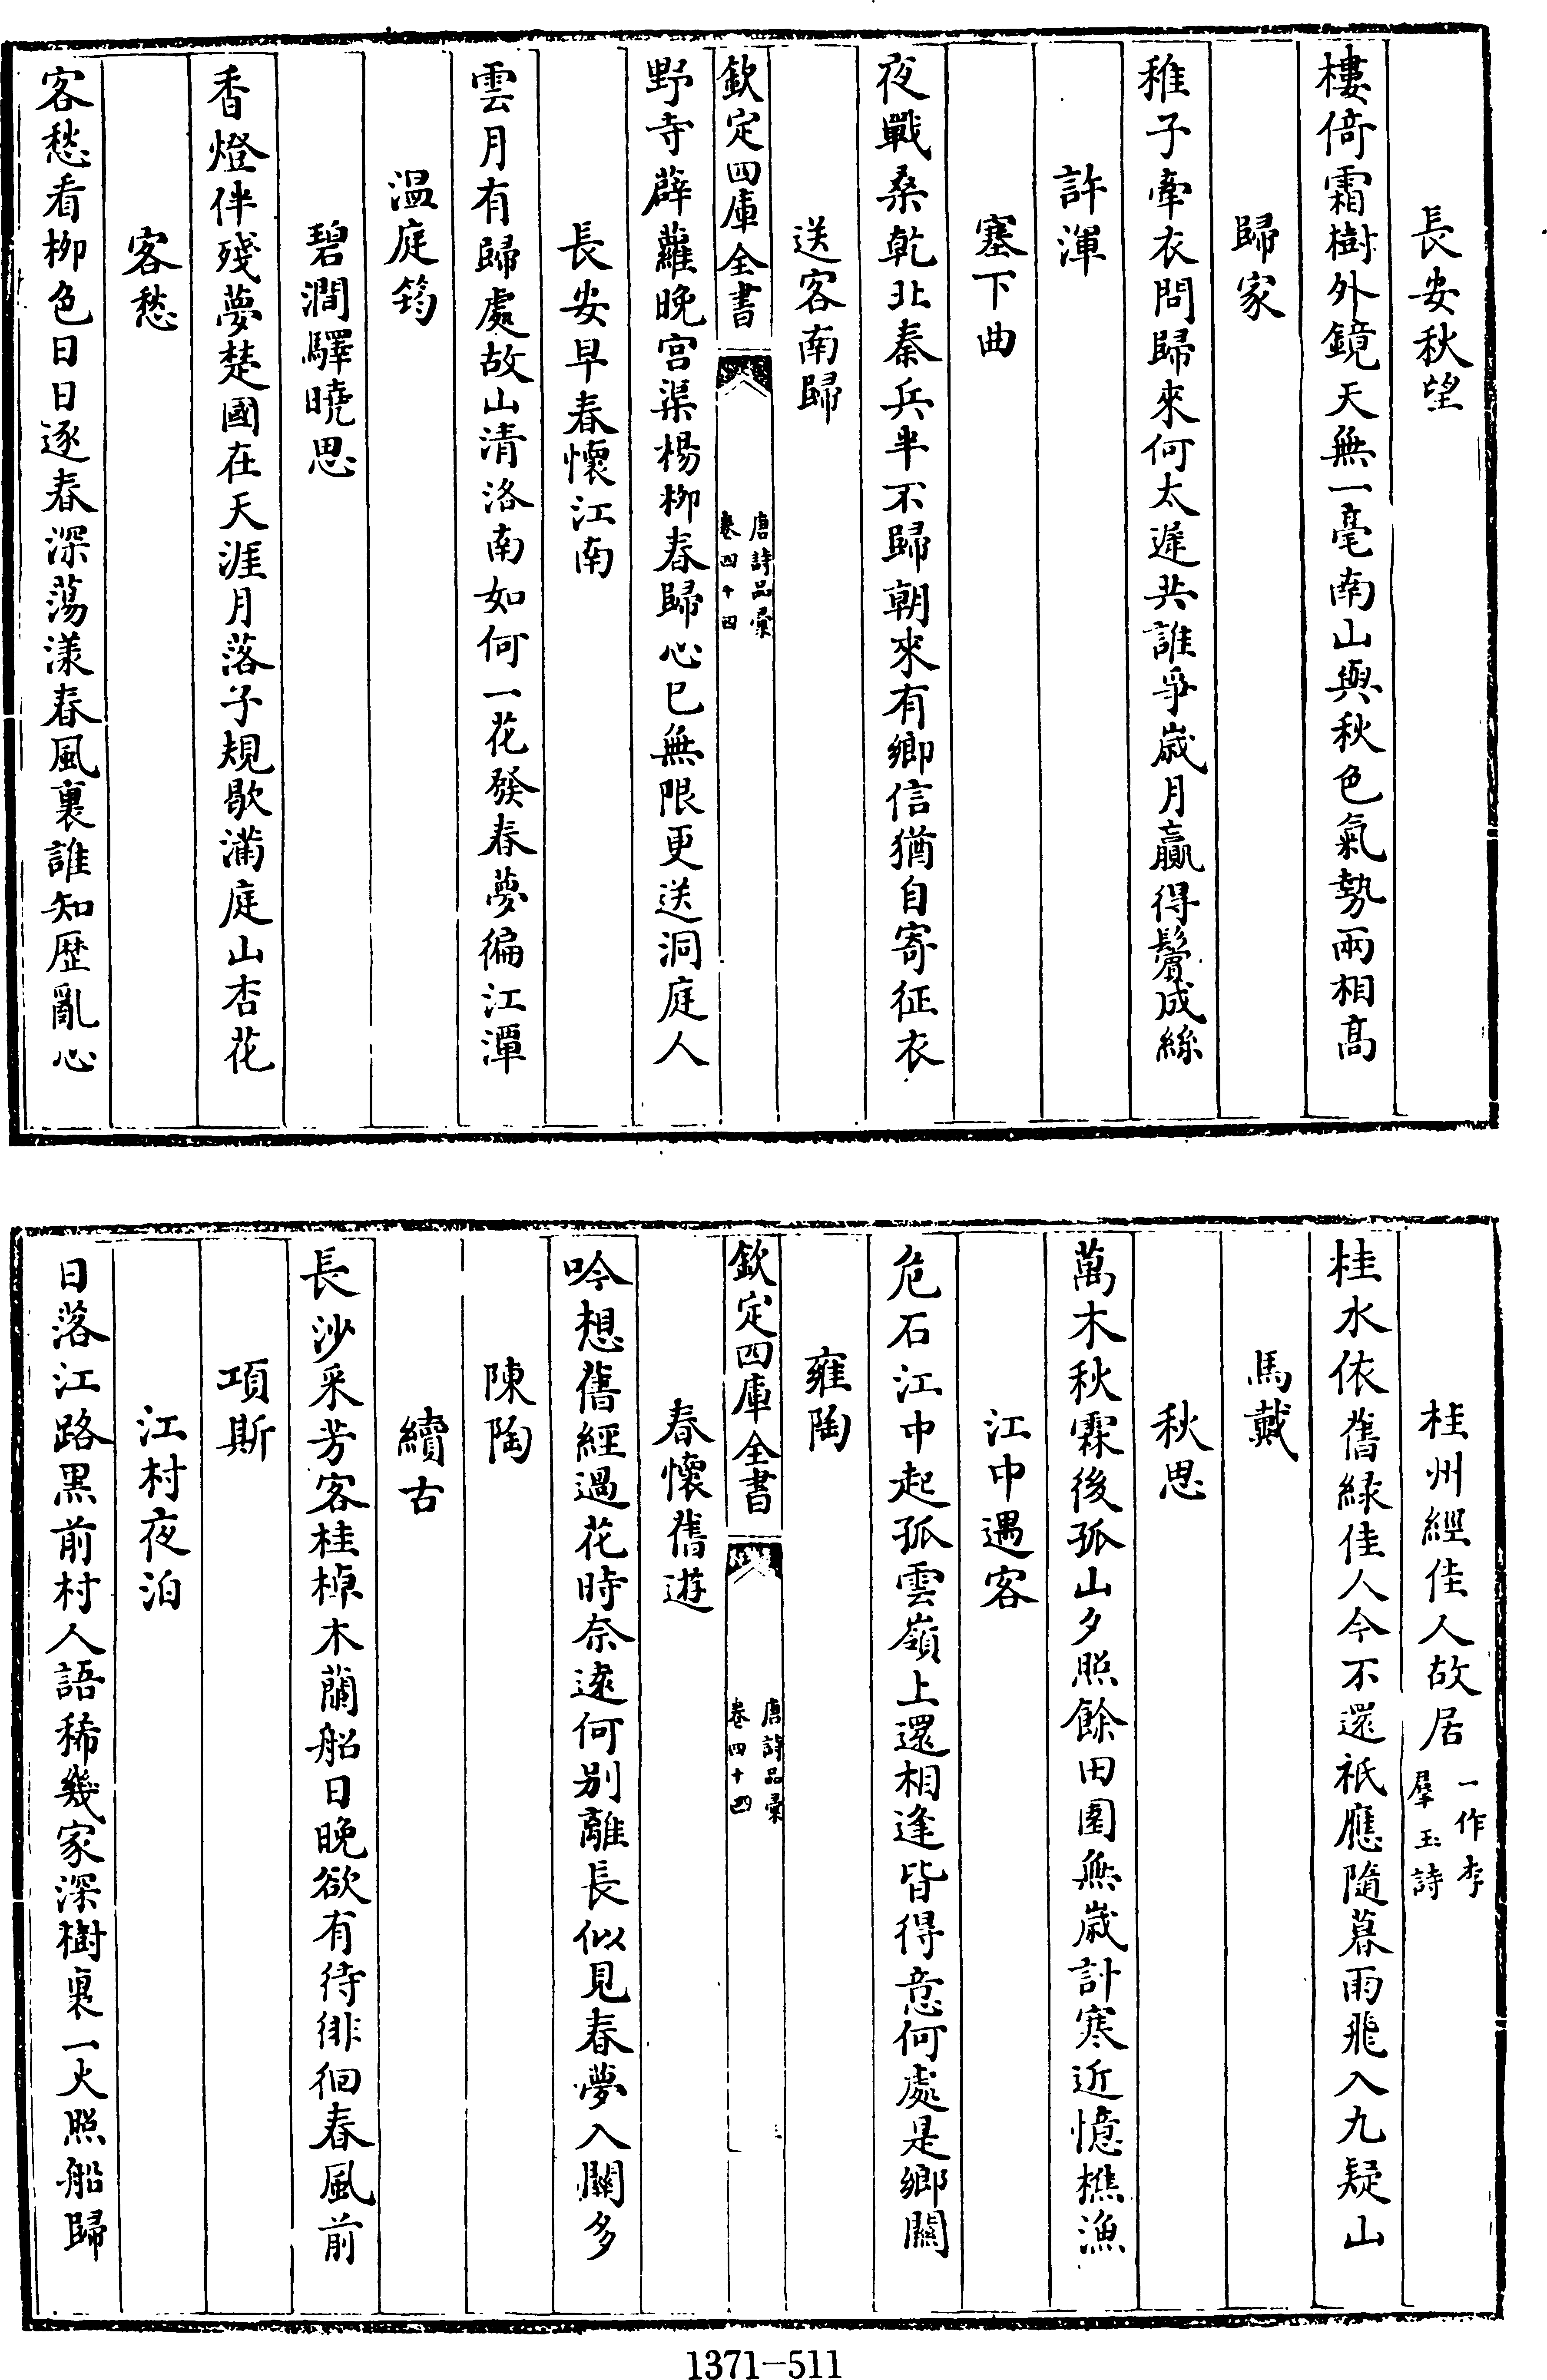 長安秋望
樓倚霜樹外鏡天無一毫南山與秋色氣勢兩相髙
歸家
稚子牽衣問歸來何太遲共誰爭歲月贏得鬢成絲
許渾
塞下曲
夜戰桑乾北秦兵半不歸朝來有鄉信猶自寄征衣
送客南歸
欽定四庫全書
唐詩品彙
卷四十四
野寺薜蘿晚宫渠楊柳春歸心已無限更送洞庭人
長安早春懷江南
雲月有歸處故山清洛南如何一花發春夢徧江潭
温庭筠
碧澗驛曉思
香燈伴殘夢楚國在天涯月落子規歇滿庭山杏花
客愁
客愁看柳色日日逐春深蕩漾春風裏誰知歴亂心
桂州經佳人故居
一作李
羣玉詩
桂水依舊緑佳人今不還祇應隨暮雨飛入九疑山
馬戴
秋思
萬木秋霖後孤山夕照餘田園無歲計寒近憶樵漁
江中遇客
危石江中起孤雲嶺上還相逢皆得意何處是鄉關
雍陶
欽定四庫全書
唐詩品彙
卷四十四
三
春懷舊遊
吟想舊經過花時奈逺何别離長似見春夢入關多
陳陶
續古
長沙采芳客桂棹木蘭船日晚欲有待徘徊春風前
項斯
江村夜泊
日落江路黒前村人語稀幾家深樹裏一火照船歸
1371-511